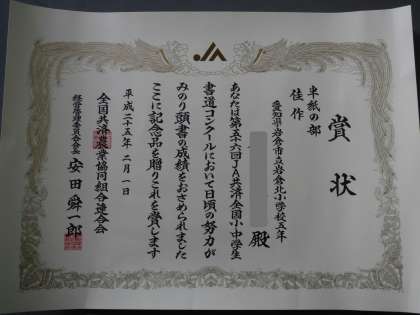 賞状
半紙の部
佳作
愛知県岩倉市立岩倉北小学校五年
殿
あなたは第五十六回JA共済全国小中学生
書道コンクールにおいて日頃の努力が
みのり頭書の成績をおさめられました
ここに記念品を贈りこれを賞します
平成二十五年二月一日
全国共済農業協同組合連合会
経営管理委員会会長 安田舜一郎